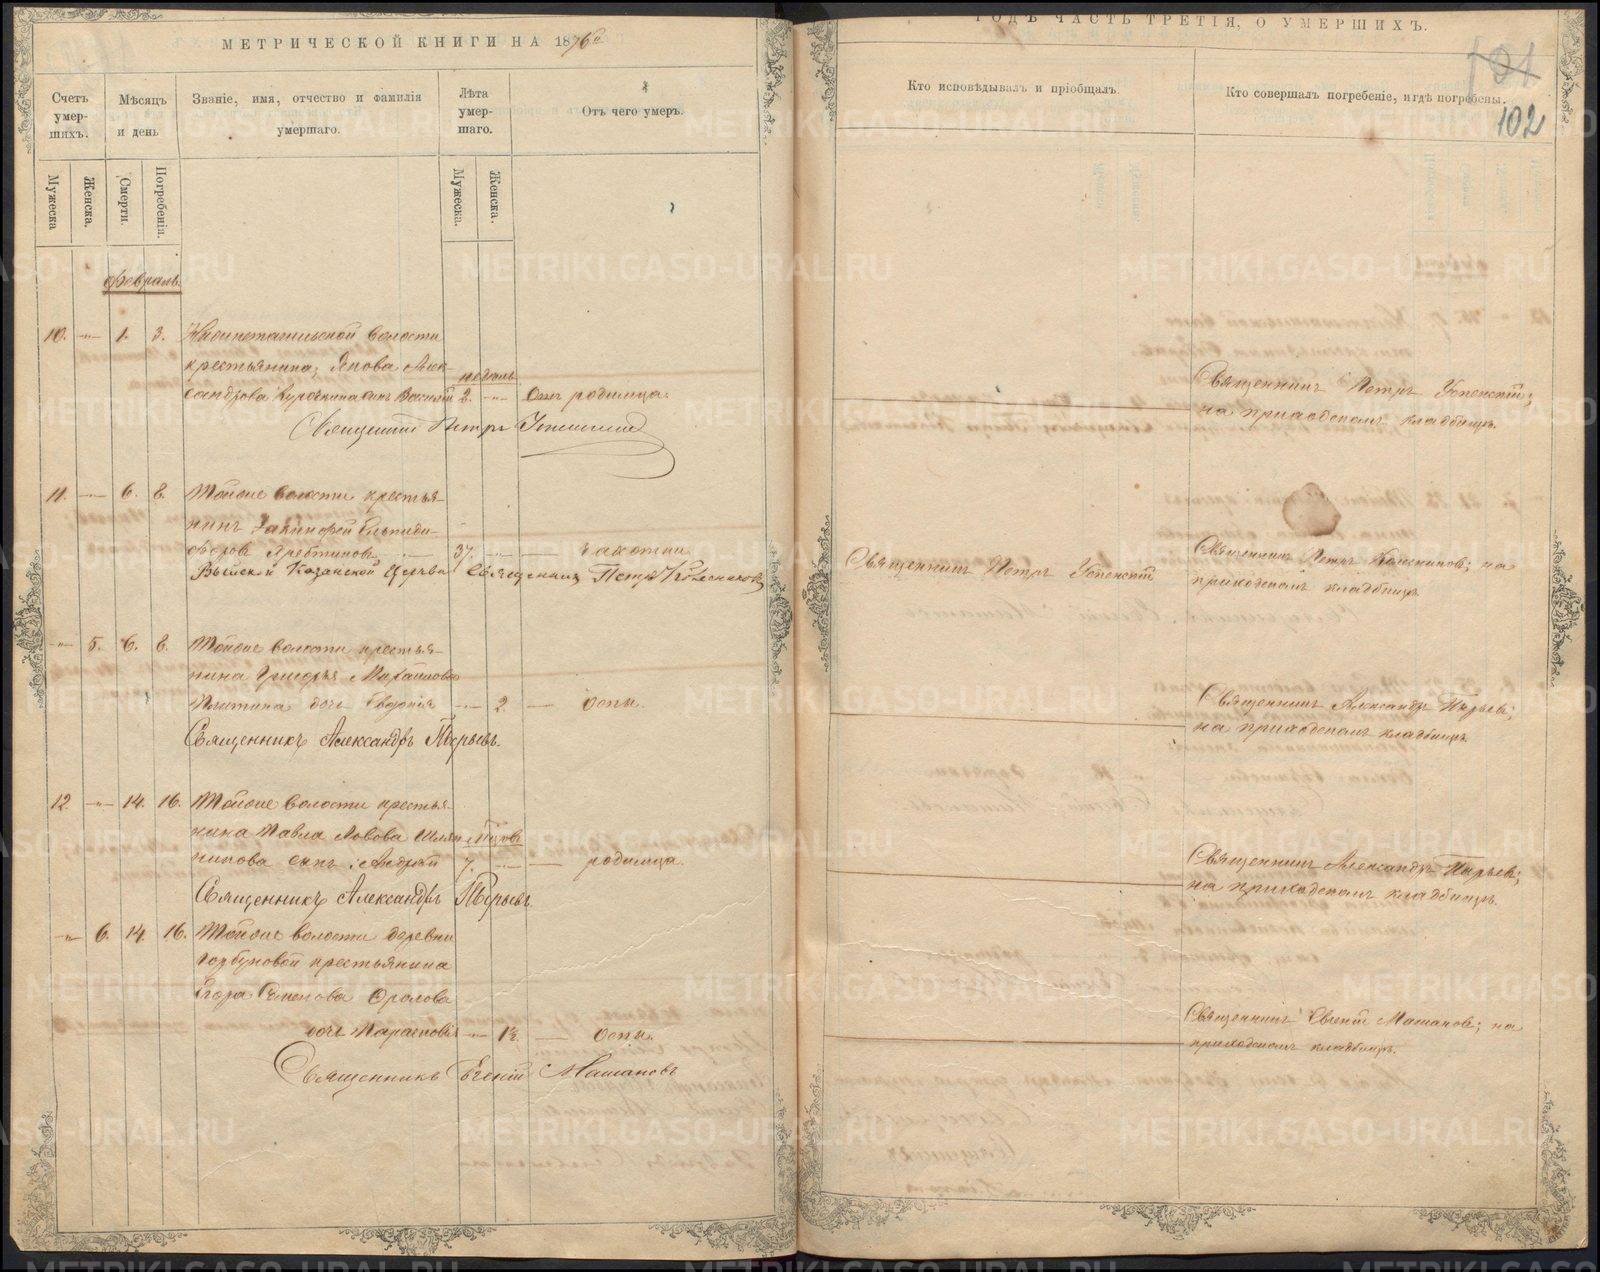 МЕТРИЧЕСКОЙ КНИГИ НА 1876й
Счетъ умер-шихъ.
Мѣсяцъ и день
Званіе, имя, отчество и фамилія умершаго.
Лѣта умер-шаго.
Отъ чего умеръ.
Мужеска
Женска.
Смерти.
Погребенія.
Мужеска.
Женска.
Февраль.
10. —„— 1. 3. волости
крестьянина, Якова Алек-
недѣль
сандрова сынъ Василій 2. —„— Отъ родимца.
Священникъ Петръ Успенскій
11. —„— 6. 8. Тойже волости крестья-
нинъ
37. —„— — чахотки
Выйской Казанской Церкви Священникъ Петръ Колесниковъ
—„— 5. 6. 8. Тойже волости крестья-
нина Григорья Михайлова
дочь Евдокія —„— 2. — оспы.
Священникъ Александръ Пырьевъ.
12. —„— 14. 16. Тойже волости крестья-
нина Павла
сынъ Андрей 7. —„— — родимца.
Священникъ Александръ Пырьевъ
—„— 6. 14. 16. Тойже волости деревни
Горбуновой крестьянина
Егора Семенова Орлова
дочь Парасковія —„— 1½. — Оспы.
Священникъ Евгеній Машановъ
ГОДЪ ЧАСТЬ ТРЕТІЯ, О УМЕРШИХЪ.
101
102
Кто исповѣдывалъ и пріобщалъ.
Кто совершалъ погребеніе, и гдѣ погребены.
Священникъ Петръ Успенскій;
на приходскомъ кладбищѣ.
Священникъ Петръ Успенскій
Священникъ Петръ Колесниковъ; на
приходскомъ кладбищѣ
Священникъ Александръ Пырьевъ;
на приходскомъ кладбищѣ
Священникъ Александръ Пырьевъ;
на приходскомъ кладбищѣ.
Священникъ Евгеній Машановъ; на
приходскомъ кладбищѣ.
METRIKI.GASO-URAL.RU